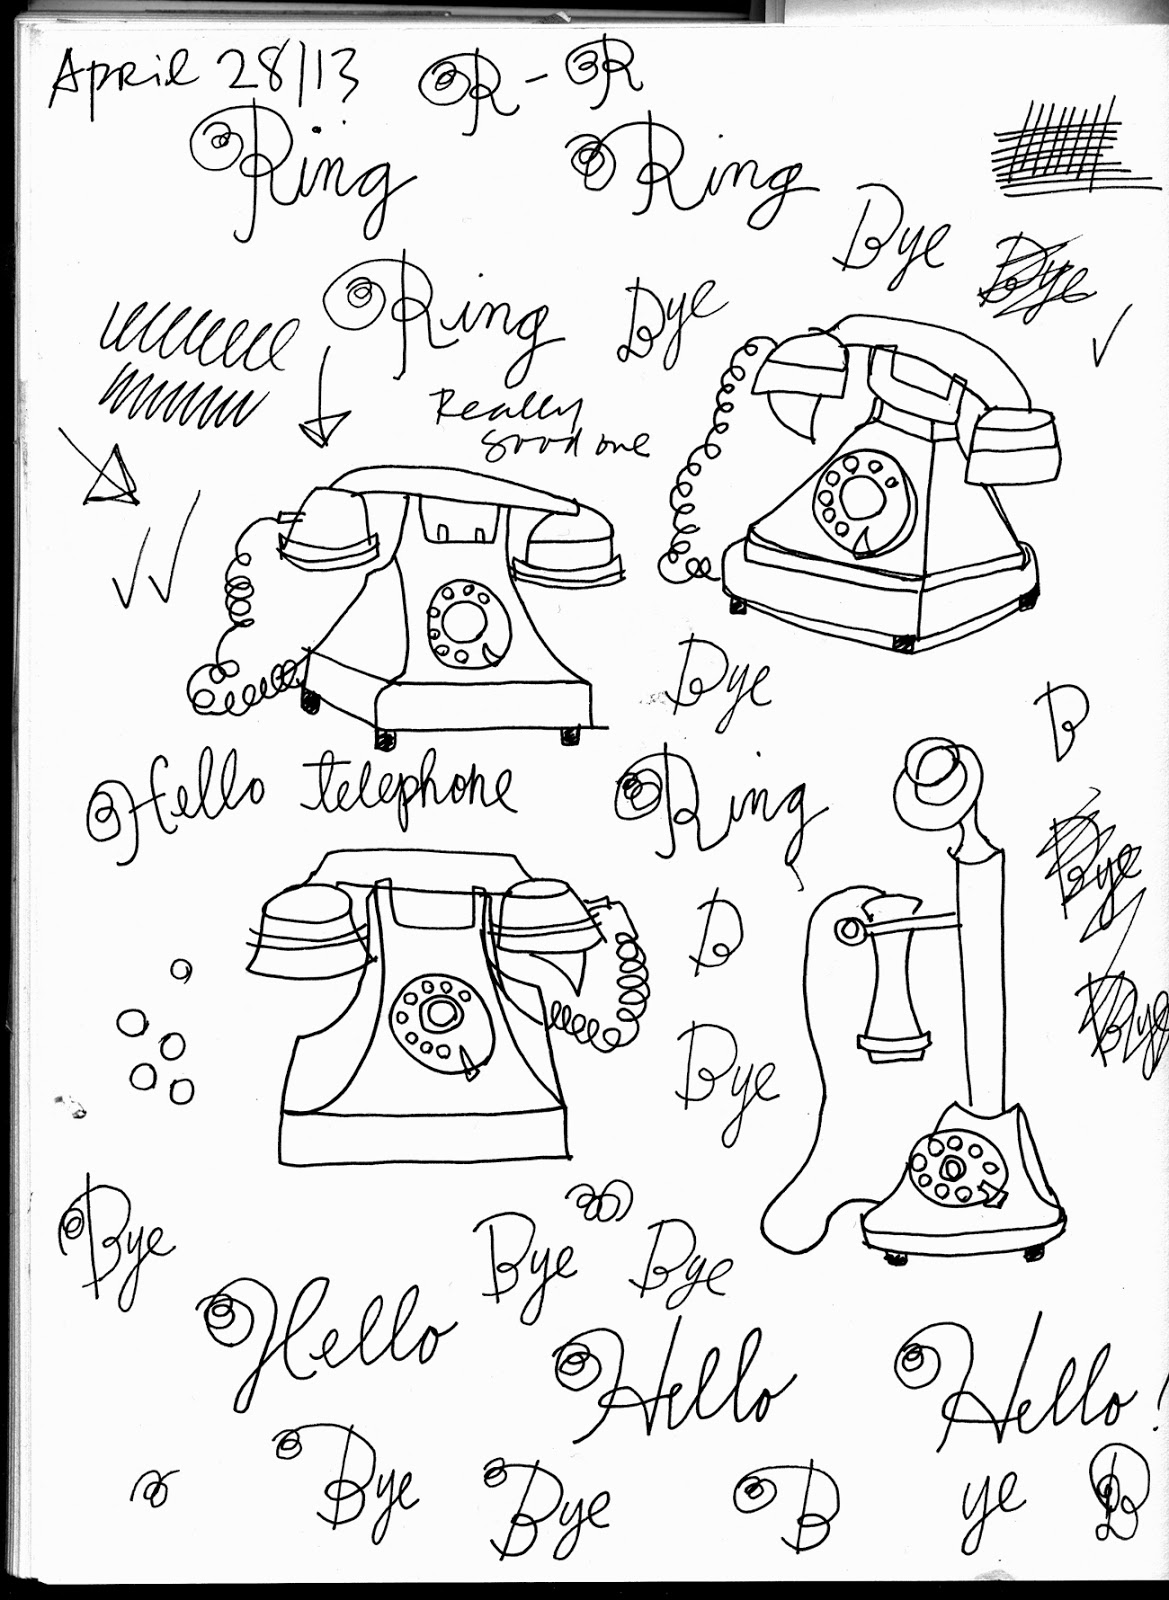 April 28/13 R - R
Ring Ring
Bye Bye
Ring Bye
Really
good one
Bye
B
Hello telephone Ring
Bye
B
Bye
Bye
Bye
Bye Bye
Hello
Hello Hello!
Bye Bye B ye B